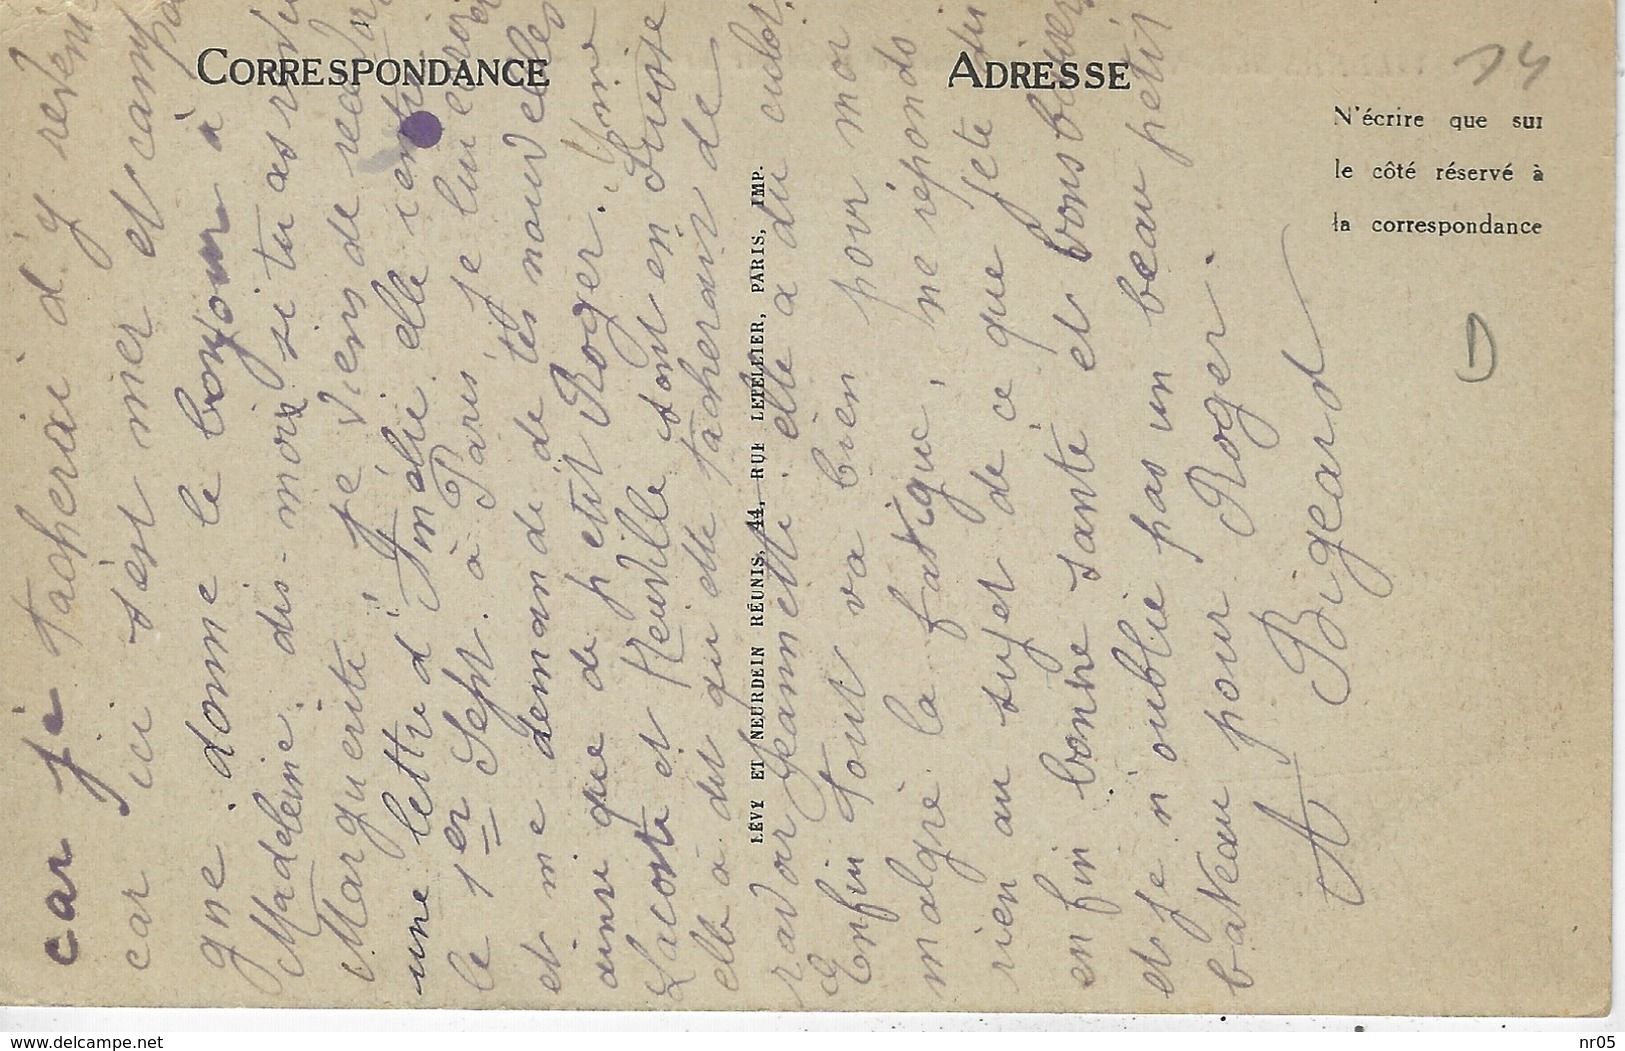 CORRESPONDANCE
ADRESSE
N'écrire que sur
le côté réservé à
la correspondance
14
D
LÉVY ET NEURDEIN RÉUNIS, 44, RUE LETELLIER, PARIS, IMP.
car je tacherai d'y reveni
car ici s'est mer et camp
gne. donne le bonjour à
Madeleine. dis-moix si tu as
Marguerite. Je viens de
une lettre d'Amélie elle
le 1er Sept. à Paris je lui
et me demande de tes nouvelles
ainsi que de petit Roger.
Lacoste et Neuville sont en Suisse
elle a dit qu'elle tacherait de
ravoir Jeannette. elle a du culot.
Enfin tout va bien pour moi
malgré la fatigue, ne réponds
rien au sujet de ce que je te dis
enfin bonne santé et bons baisers
et je n'oublie pas un beau petit
bateau pour Roger.
A Bigeard
www.delcampe.net
nr05